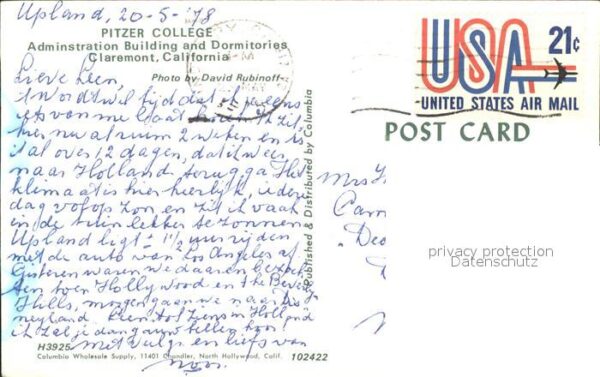 Upland, 20-5-'78
PITZER COLLEGE
Adminstration Building and Dormitories
Claremont, California
Photo by David Rubinoff
Lieve Leen,
't Wordt wel tijd dat je eens
iets van me hoort. Ik zit
hier nu al ruim 2 weken en is
't al over 12 dagen, dat ik weer
naar Holland terug ga. Het
klimaat is hier heerlijk, iedere
dag volop zon en zit ik vaak
in de tuin lekker te zonnen
Upland ligt ± 1½ uur rijden
met de auto van Los Angeles af
Gisteren waren we daar en bezoch
ten toen Hollywood en the Beverly
Hills, morgen gaan we naar Dis
neyland. Leen tot ziens in Holland
ik zal je dan gauw bellen hoor
met veel gr. en liefs van
H3925
Columbia Wholesale Supply, 11401 Chandler, North Hollywood, Calif.
102422
Published & Distributed by Columbia
USA 21¢
UNITED STATES AIR MAIL
POST CARD
Mrs
privacy protection
Datenschutz